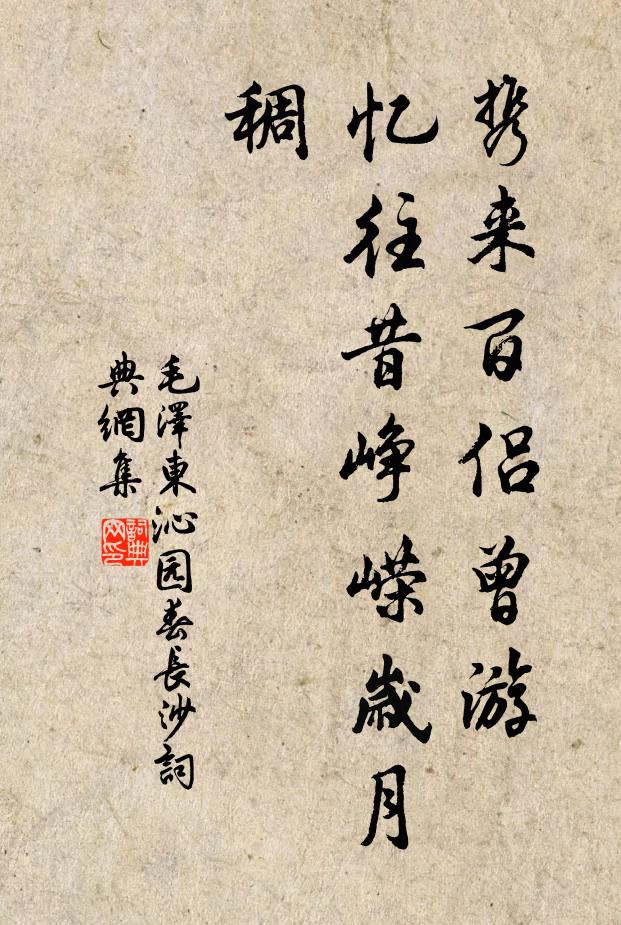 携来百侣曾游
忆往昔峥嵘岁月
稠
毛澤東沁园春長沙詞
典網集
詞典网印